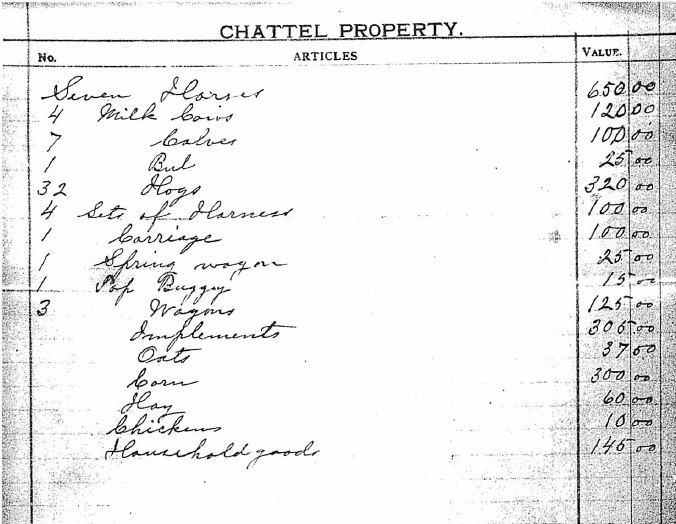 CHATTEL PROPERTY.
No. ARTICLES VALUE.
Seven Horses 650 00
4 Milk Cows 120 00
7 Calves 100 00
1 Bul 25 00
32 Hogs 320 00
4 Sets of Harness 100 00
1 Carriage 100 00
1 Spring wagon 25 00
1 Top Buggy 15 00
3 Wagons 125 00
Implements 305 00
Oats 37 50
Corn 300 00
Hay 60 00
Chickens 10 00
Household goods 145 00